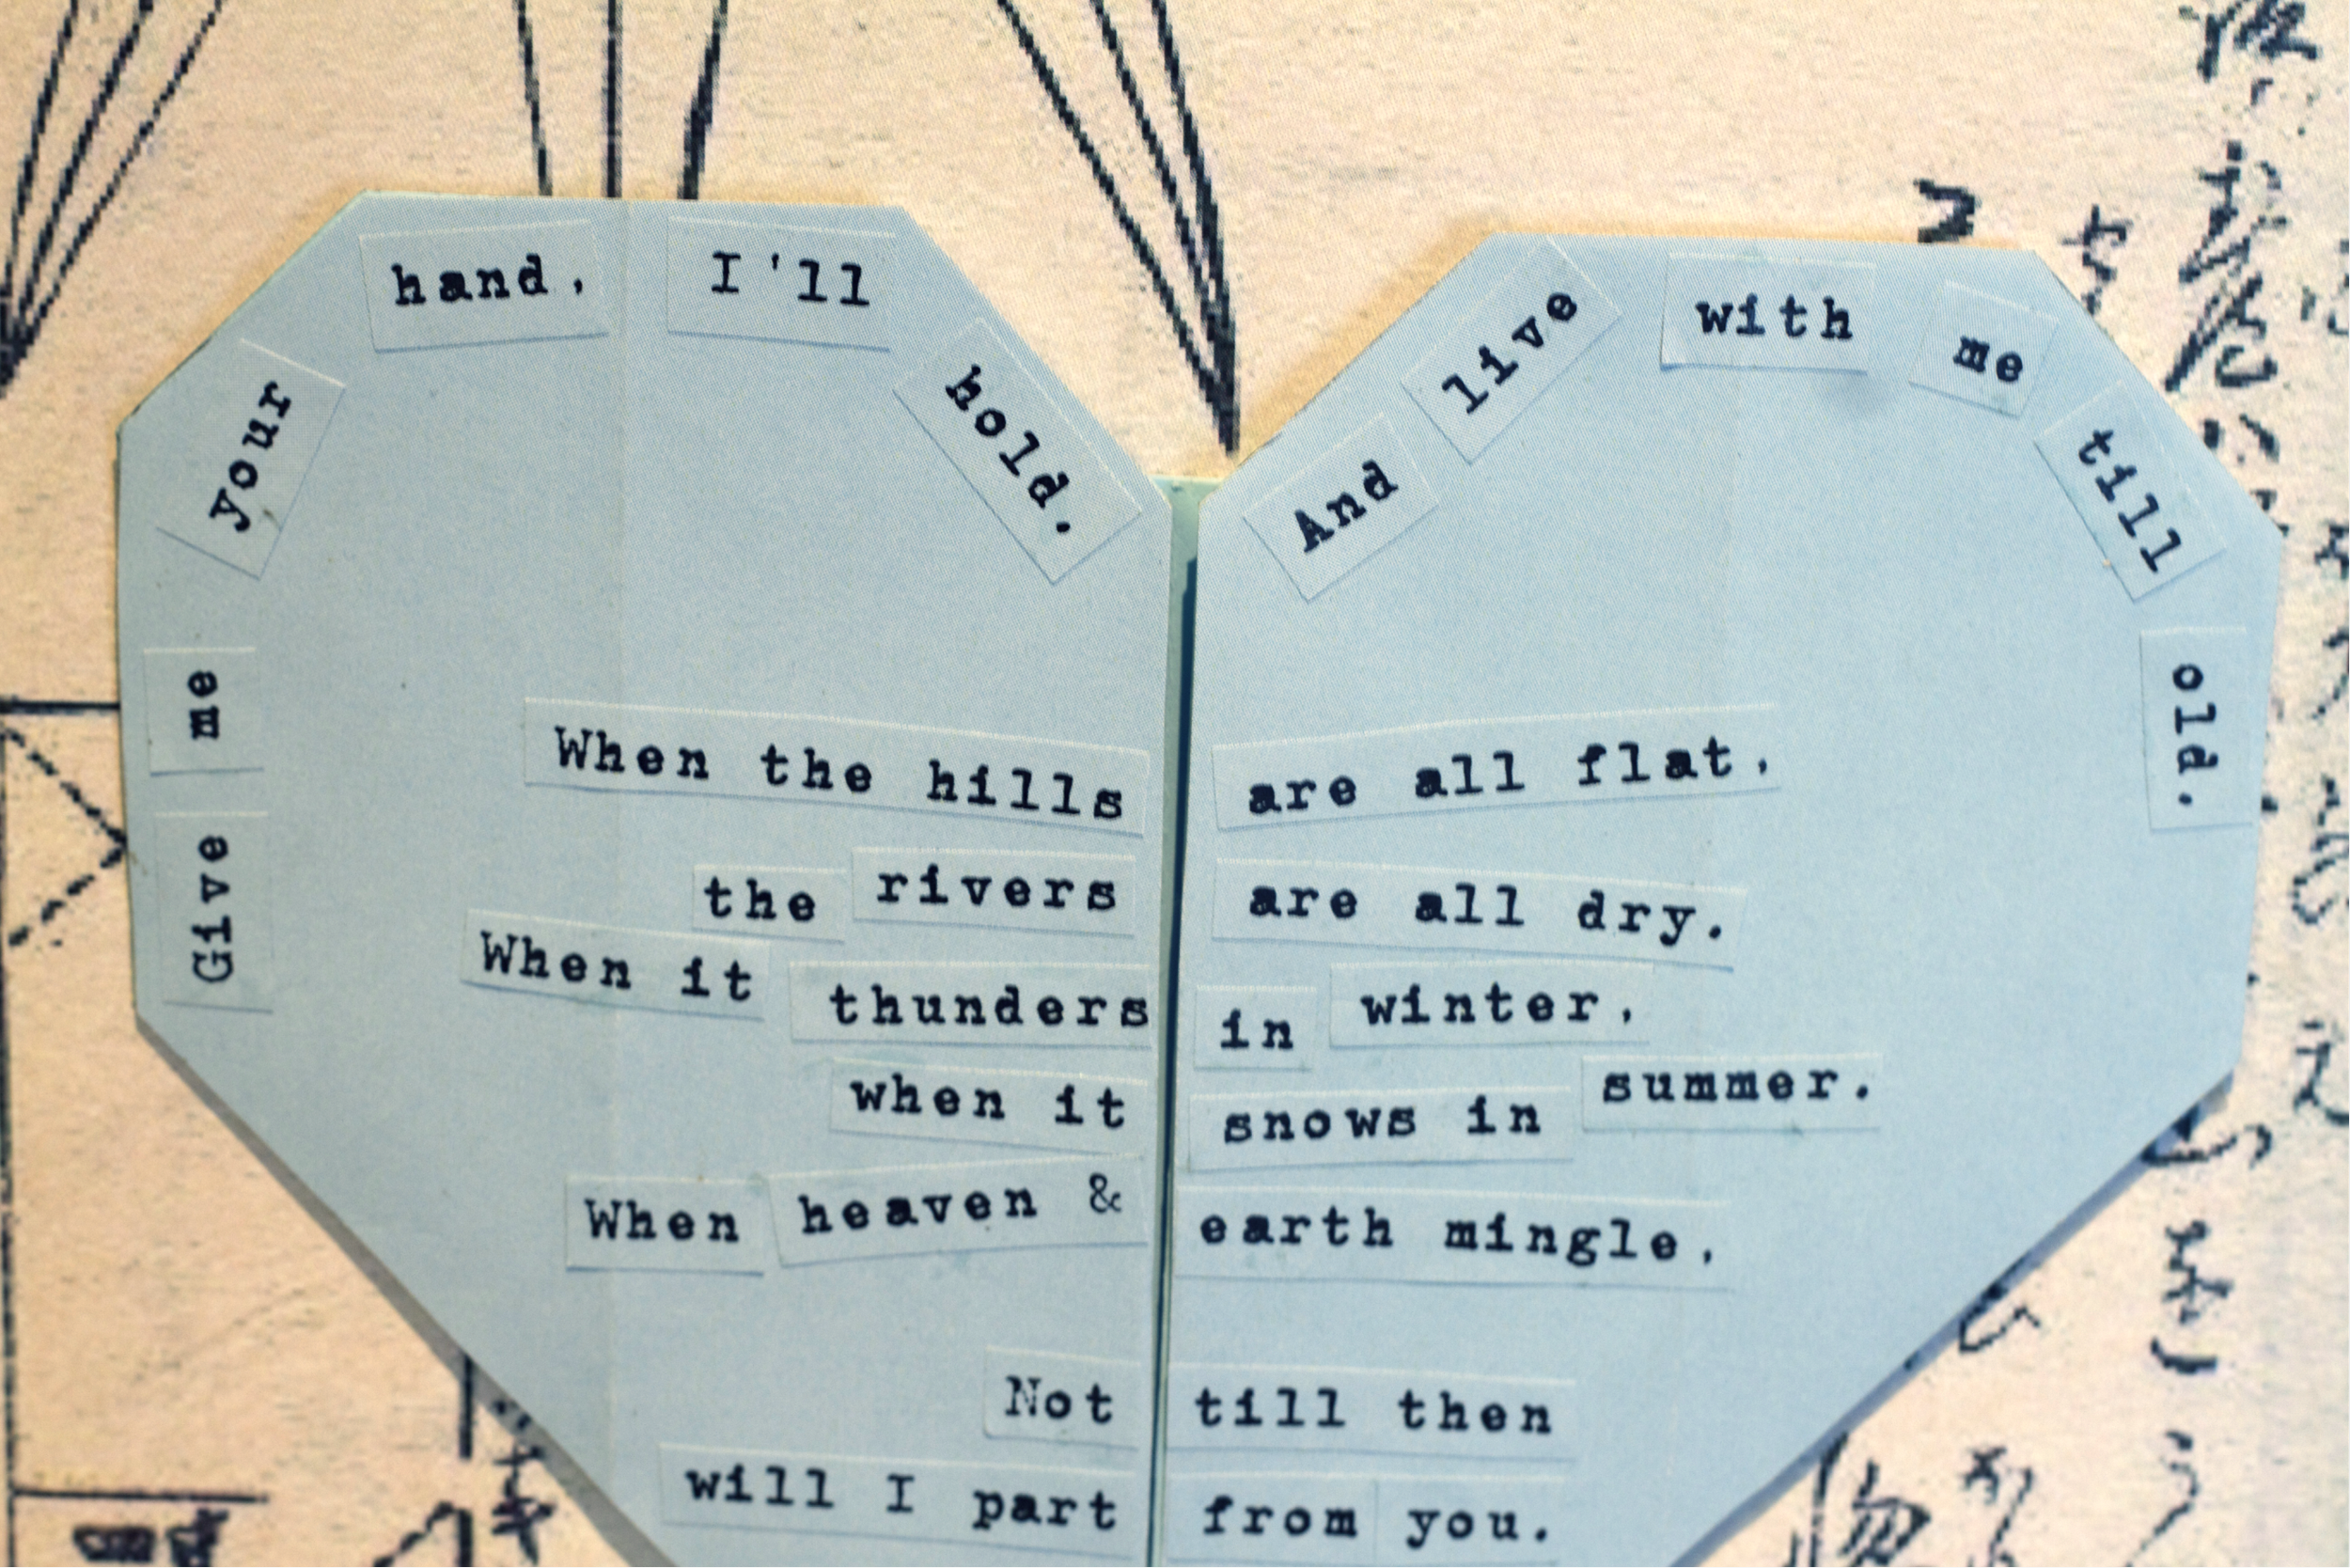 Give me your hand, I'll hold.
And live with me till old.
When the hills are all flat,
the rivers are all dry.
When it thunders in winter,
when it snows in summer.
When heaven & earth mingle,
Not till then
will I part from you.